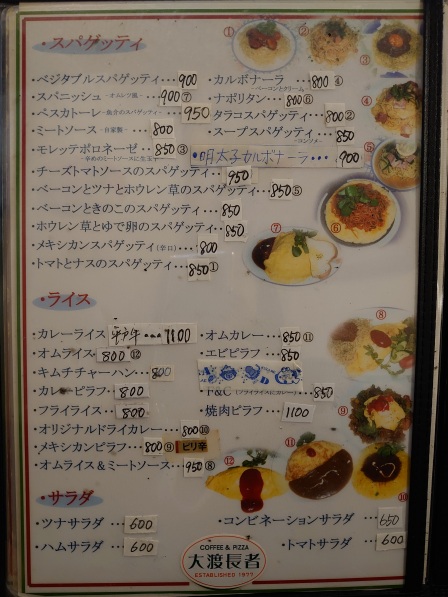 ・スパゲッティ
① ② ③
・ベジタブルスパゲッティ…900
・カルボナーラ …800④
-ベーコンとクリーム-
・スパニッシュ -オムレツ風- …900⑦
・ナポリタン …800⑥
④
・ペスカトーレ -魚介のスパゲッティ- …950
・タラコスパゲッティ …800②
・ミートソース -自家製- …800
・スープスパゲッティ …850
-コンソメ-
・モレッテボロネーゼ …850③
-辛めのミートソースに生玉子-
・明太子カルボナーラ・・・900
⑤
・チーズトマトソースのスパゲッティ…950
・ベーコンとツナとホウレン草のスパゲッティ…850⑤
・ベーコンときのこのスパゲッティ…850
・ホウレン草とゆで卵のスパゲッティ…850
⑦ ⑥
・メキシカンスパゲッティ(辛口)…800
・トマトとナスのスパゲッティ…850①
・ライス
⑧
・カレーライス 平戸牛・・・1100
・オムカレー…850⑪
・オムライス…800⑫
・エビピラフ…850
・キムチチャーハン…800
・カレーピラフ…800
・F&C (フライライスにカレー)…850
・フライライス…800
・焼肉ピラフ…1100
⑨
・オリジナルドライカレー…800⑩
・メキシカンピラフ…800⑨ ピリ辛
⑪
・オムライス&ミートソース…950⑧
⑫
⑩
・サラダ
・ツナサラダ …600
・コンビネーションサラダ …650
・ハムサラダ …600
・トマトサラダ …600
COFFEE & PIZZA
大渡長者
ESTABLISHED 1977